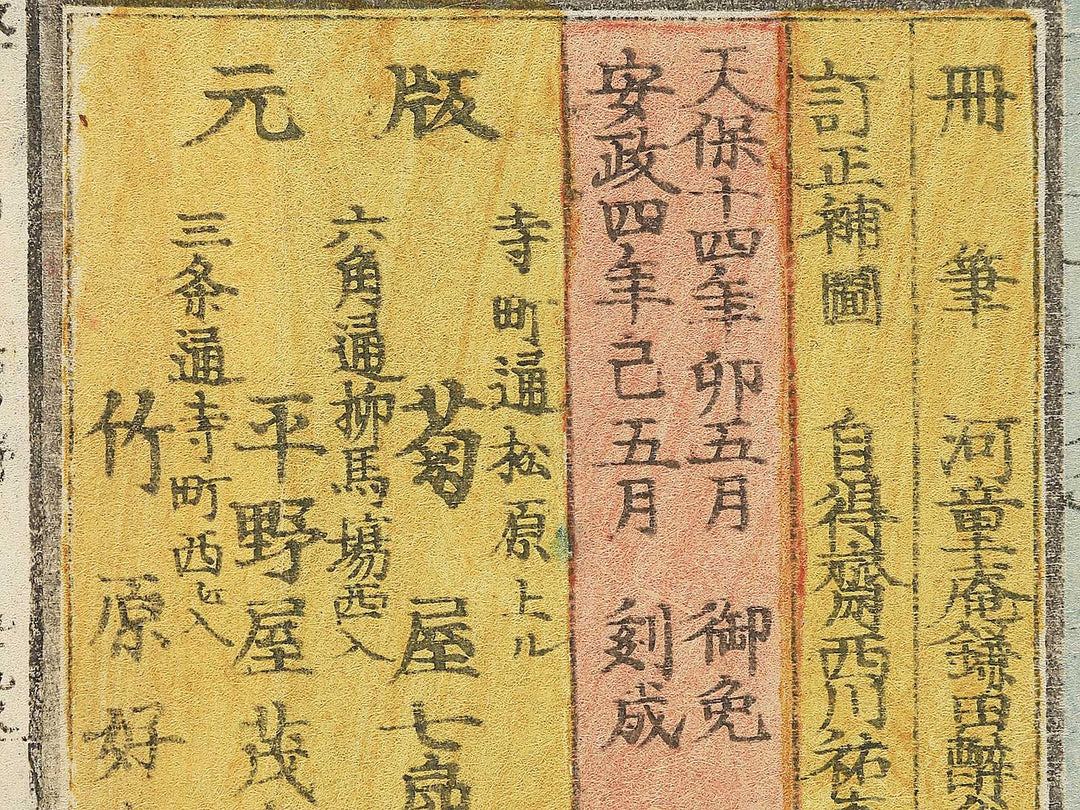 冊筆 河童庵鎌田酔
訂正補圖 自得齋西川祐
天保十四年卯五月 御免
安政四年己五月 刻成
版元
寺町通松原上ル
菊屋七郎
六角通柳馬場西入
平野屋茂
三条通寺町西へ入
竹原好